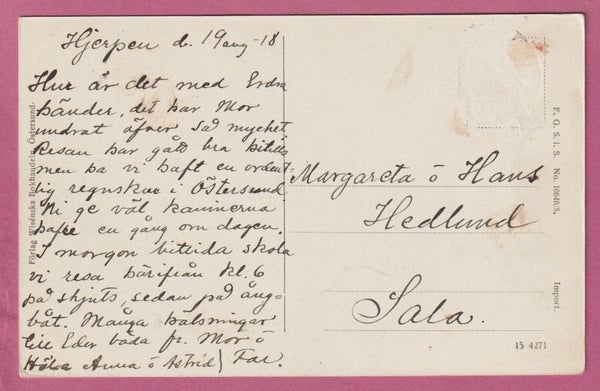 Hjerpen d. 19 aug - 18
Hur är det med Edra
händer, det har Mor
undrat öfver så mycket
Resan har gått bra hitills
men ha vi haft en ordent-
lig regnskur i Östersund.
Ni ge väl kaninerna
hafre en gång om dagen.
I morgon bittida skola
vi resa härifrån kl. 6
på skjuts, sedan på ång-
båt. Många hälsningar
till Eder båda fr. Mor o
Hälsa Anna o Astrid / Far.
Margareta o Hans
Hedlund
Sala.
Förlag Wisénska Bokhandeln, Östersund.
F. G. S. i. S. No. 10646/5.
Import.
15 4271